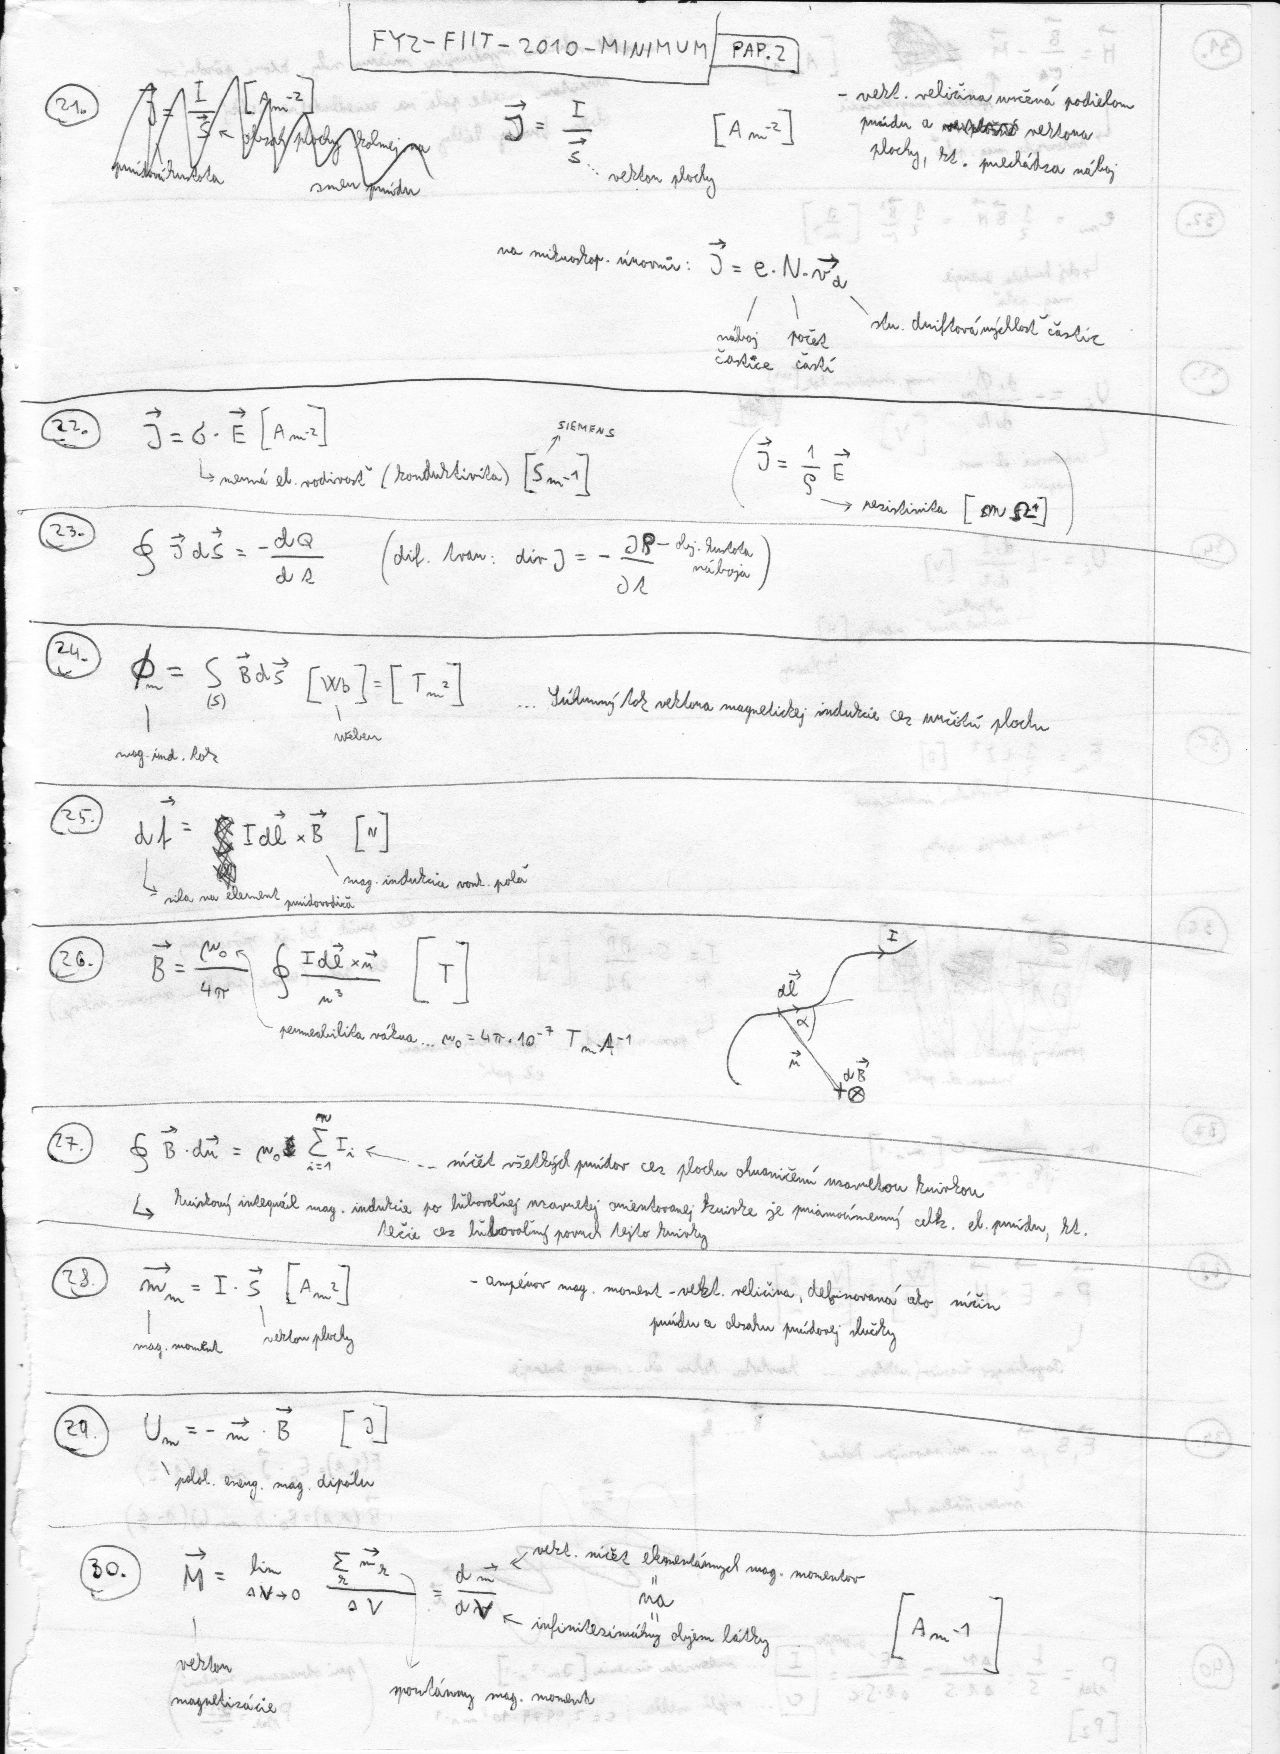 FYZ-FIIT-2010-MINIMUM PAP.2
21. J = I / S [Am⁻²]
obsah plochy kolmej na
smer prúdu
J⃗ = I / S⃗ [Am⁻²]
vektor plochy
- vekt. veličina určená podielom
prúdu a vektora
plochy, kt. prechádza náboj
na mikroskop. úrovni: J⃗ = e · N · v⃗d
náboj častice
počet častí
str. driftová rýchlosť častíc
22. J⃗ = σ · E⃗ [Am⁻²]
merná el. vodivosť (konduktivita) [Sm⁻¹]
SIEMENS
(J⃗ = 1/ρ E⃗)
rezistivita
23. ∮ J⃗ dS⃗ = -dQ/dt (dif. tvar: div J = - ∂ρ/∂t - obj. hustota náboja)
24. ϕm = ∫(S) B⃗ dS⃗ [Wb] = [Tm²] ... Súhrnný tok vektora magnetickej indukcie cez určitú plochu
mag. ind. tok
weber
25. df⃗ = I dl⃗ × B⃗ [N]
sila na element prúdovodiča
mag. indukcia vonk. poľa
26. B⃗ = μ₀/4π ∮ I dl⃗ × r⃗ / r³ [T]
permeabilita vákua ... μ₀ = 4π · 10⁻⁷ TmA⁻¹
I
dl⃗
α
r⃗
dB⃗
27. ∮ B⃗ · dr⃗ = μ₀ Σ(i=1, n) Ii ... súčet všetkých prúdov cez plochu ohraničenú uzavretou krivkou
krivkový integrál mag. indukcie po ľubovoľnej uzavretej orientovanej krivke je priamoúmerný celk. el. prúdu, kt.
tečie cez ľubovoľný povrch tejto krivky
28. m⃗m = I · S⃗ [Am²] - ampérov mag. moment - vekt. veličina, definovaná ako súčin
prúdu a obsahu prúdovej slučky
mag. moment
vektor plochy
29. Um = - m⃗ · B⃗ [J]
potol. energ. mag. dipólu
30. M⃗ = lim ΔV→0 Σ m⃗ / ΔV = dm⃗/dV [Am⁻¹]
vekt. súčet elementárnych mag. momentov
na
infinitezimálny objem látky
vektor
magnetizácie
spontánny mag. moment